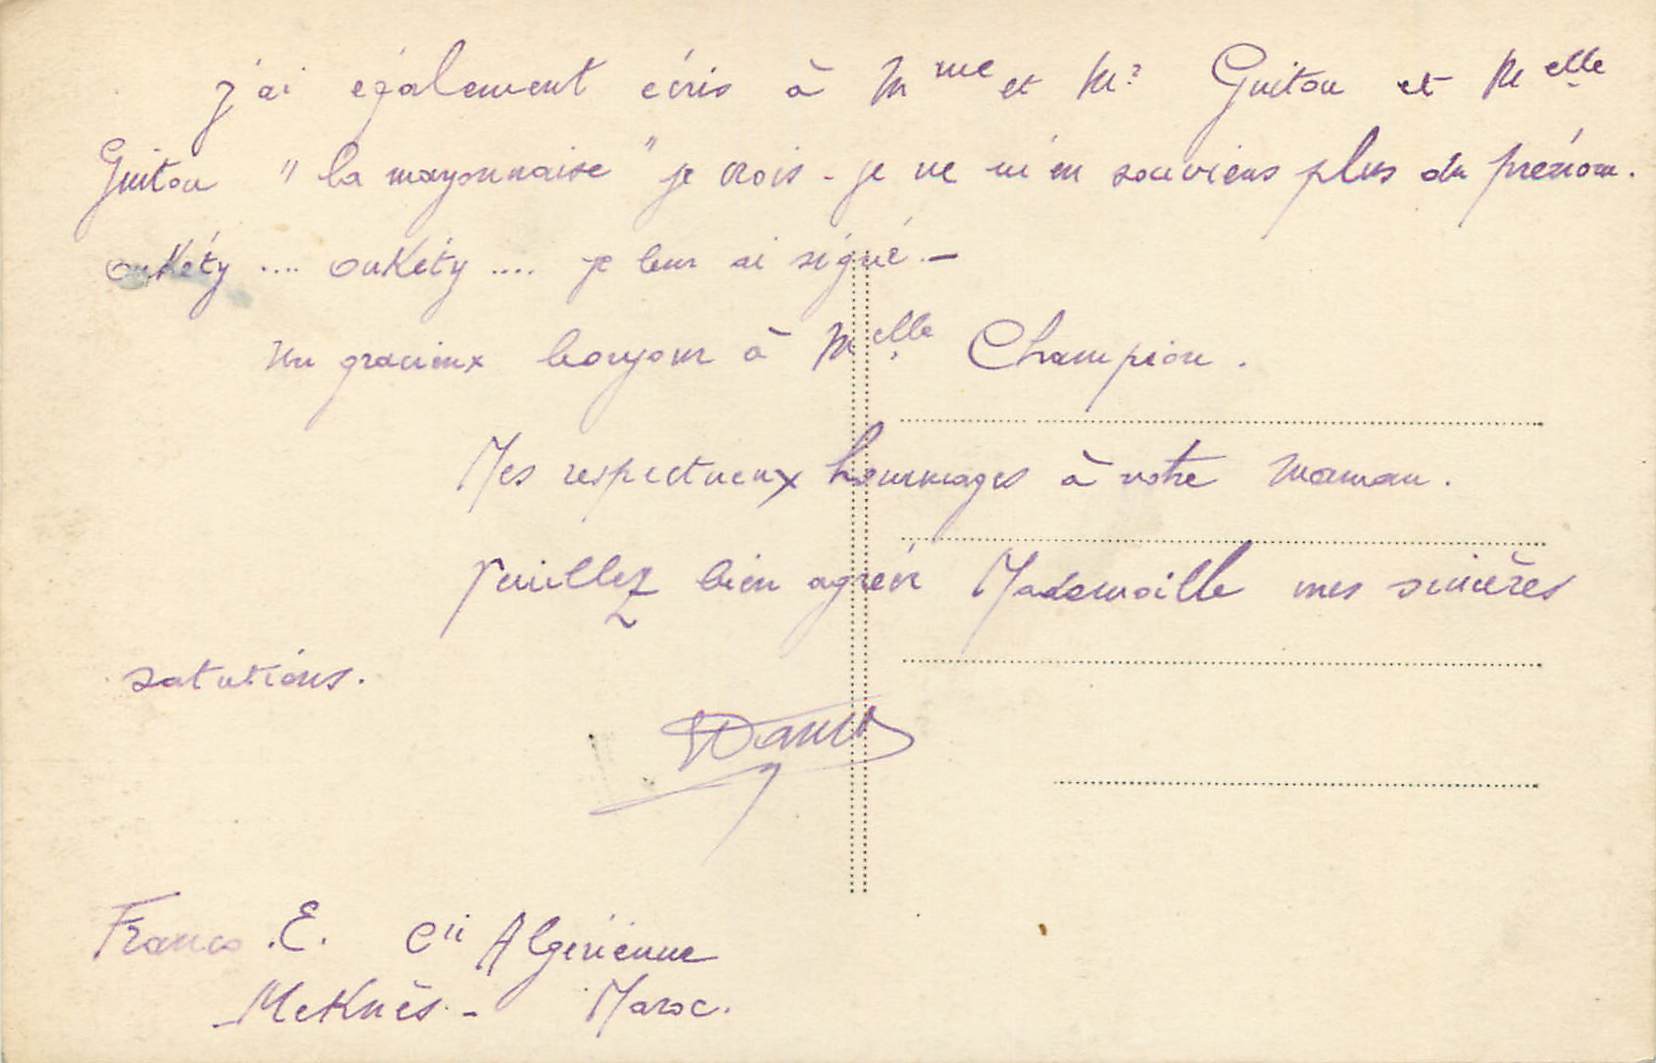 j'ai également écris à Mme et Mr Guitou et Melle
Guitou "la mayonnaise" je crois - je ne m'en souviens plus du prénom.
ouKéty .... ouKéty .... je leur ai signé. -
Un gracieux bonjour à Melle Champion.
Mes respectueux hommages à votre maman.
Veuillez bien agréer Mademoiselle mes sincères
salutations.
Franco .E. Cie Algérienne
- MeKnès. - Maroc.